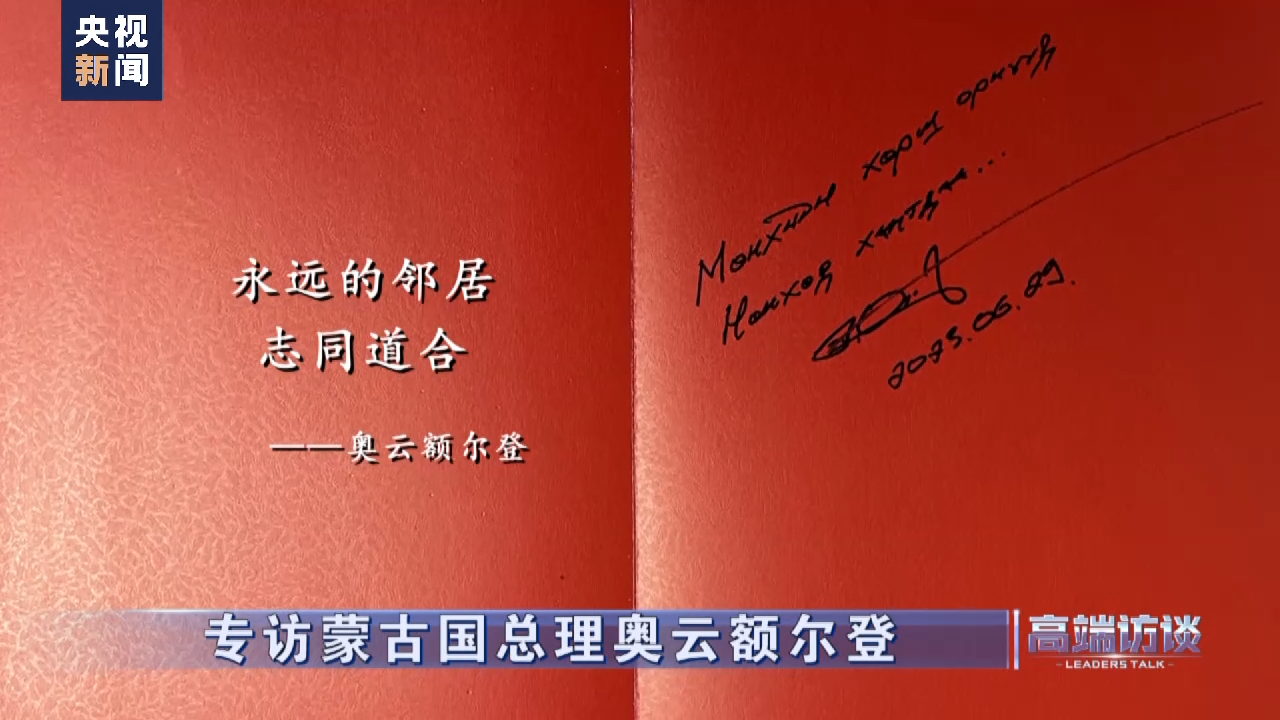 央视
新闻
永远的邻居
志同道合
——奥云额尔登
Мөнхийн хөрш орнууд
Мөнхөд хамтдаа...
2023.06.29.
专访蒙古国总理奥云额尔登
高端访谈
LEADERS TALK